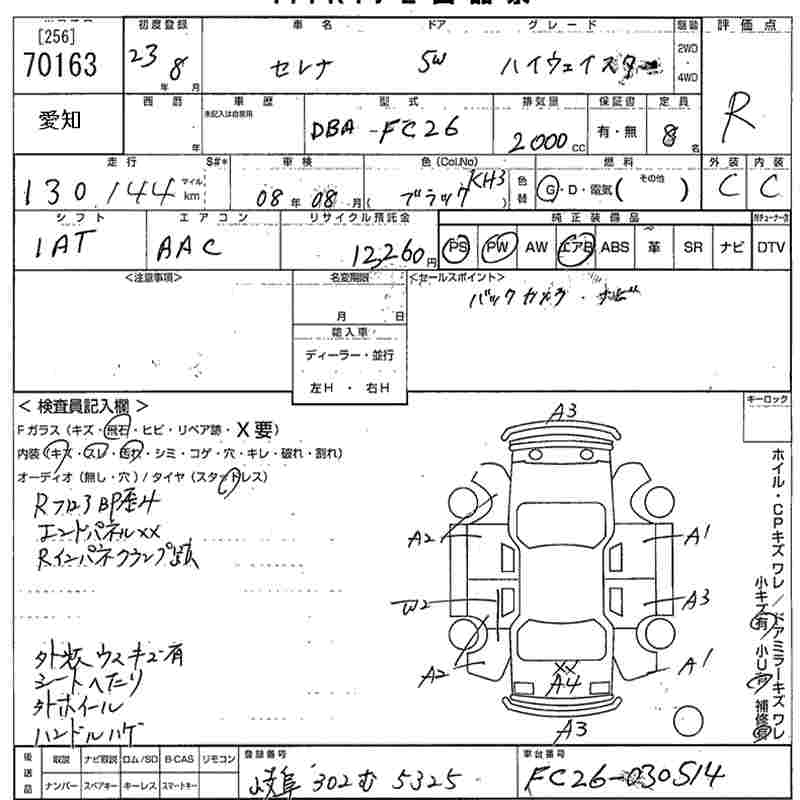 [256]
70163
初度登録
23 年 8 月
車名 ドア グレード
セレナ 5W ハイウェイスター
2WD
・
4WD
評価点
R
愛知
西暦
年
車歴
未記入は自家用
型式
DBA-FC26
排気量
2000 CC
保証書
有・無
定員
8 名
走行
130,144 マイル km
S#*
車検
08年 08月
色 (Col.No)
( ブラック KH3 )
色替
燃料
G・D・電気( その他 )
外装
C
内装
C
シフト
IAT
エアコン
AAC
リサイクル預託金
12,260円
純正装備品
PS PW AW エアB ABS 革 SR ナビ DTV
<注意事項>
名変期限
月 日
輸入車
ディーラー・並行
左H・右H
<セールスポイント>
バックカメラ・ナビ
キーロック
< 検査員記入欄 >
Fガラス(キズ・飛石・ヒビ・リペア跡・X要)
内装(キズ・スレ・汚れ・シミ・コゲ・穴・キレ・破れ・割れ)
オーディオ(無し・穴)/タイヤ(スタッドレス)
エンドパネルXX
外装ウスキズ有
シートヘたり
外ホイール
ハンドルハゲ
A3
A2 A1
W2 A3
A2 A1
XX
A4
A3
ホイル・CPキズ ワレ/ドアミラーキズ ワレ
小キズ有/小U有 補修有
後送品
取説 ナビ取説 ロム/SD B-CAS リモコン
ナンバー スペアキー キーレス スマートキー
登録番号
岐阜 302 む 5325
車台番号
FC26-030514